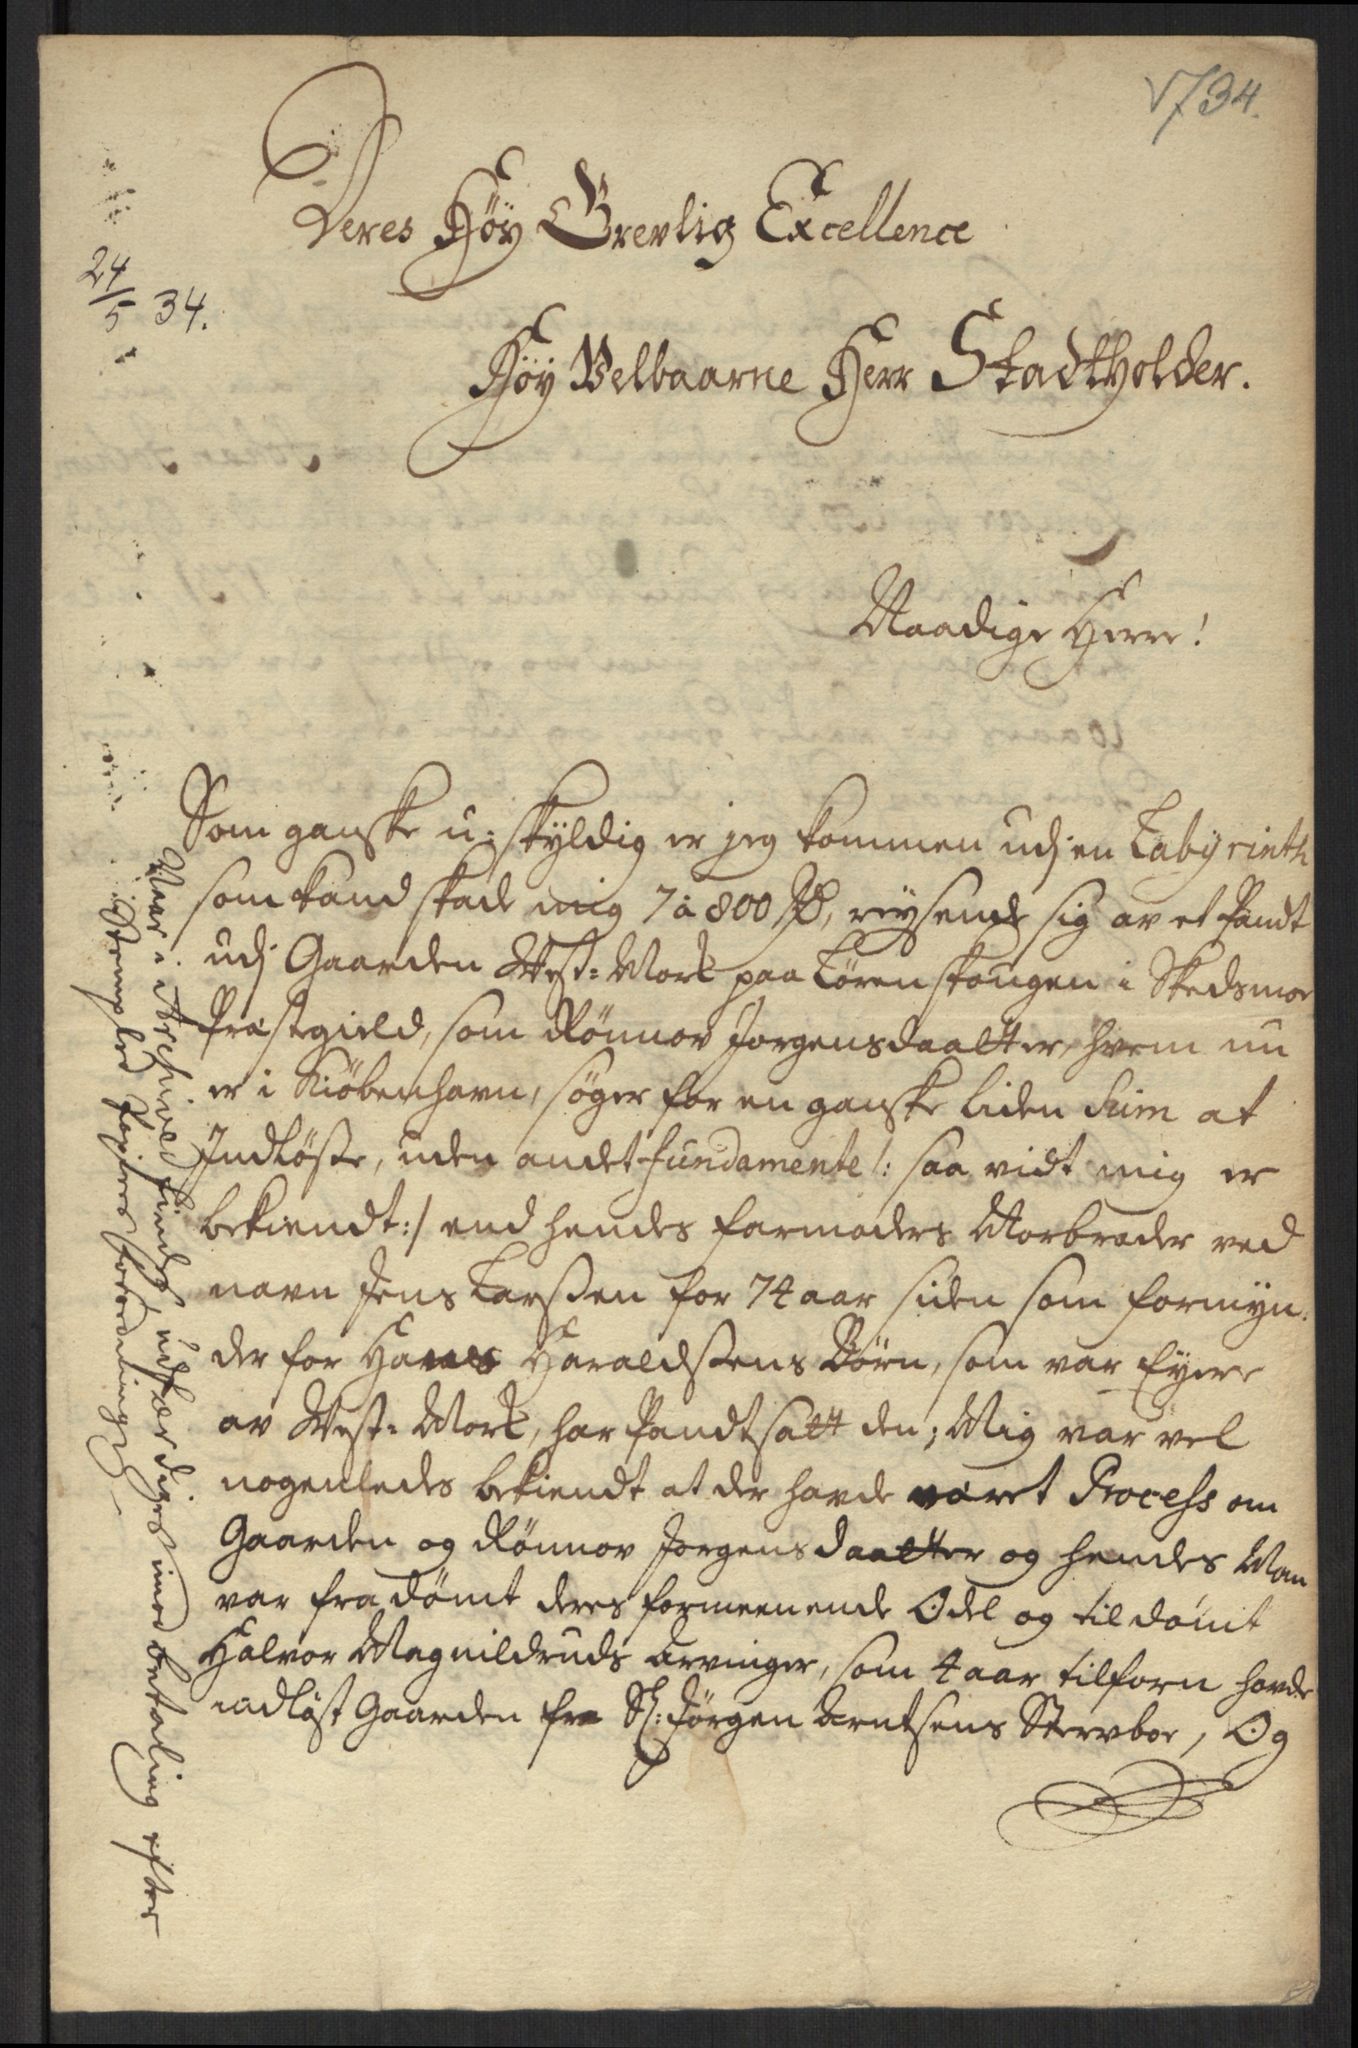 1734.
24/5 34.
Deres Høy Grevlig Excellence
Høy Velbaarne Herr Stadtholder.
Naadige Herre!
Som ganske u-skyldig er jeg kommen udj en Labyrinth
som kand skade mig 7 a 800 Rd, reysende sig av et Pandt
udj Gaarden West-Mork paa Lørenskougen i Skedsmoe
Præstegield, som Rønnov Jorgensdaatter, hvem nu
er i Kiøbenhavn, søger for en ganske liden Suim at
Indløsse, uden andet Fundamente /: saa vidt mig er
bekiendt :/ end hendes Farmoders Morbroder ved
navn Jens Larssen for 74 aar siden som Formyn-
der for Hans Haraldssens Børn, som var Eyere
av West-Mork, har Pandtsatt den; Mig var vel
nogenledes bekiendt at der havde været Process om
Gaarden og Rønnov Jorgensdaatter og hendes Man
var fradømt deres formeenende Odel og tildømt
Halvor Magnildruds Arvinger, som 4 aar tilforn havde
indløst Gaarden fra Sl: Jørgen Arntsens Stervboe, Og
Naar i Archived findes, udfærdiges imod betaling efter
Stemplede Papiirs Forordninger